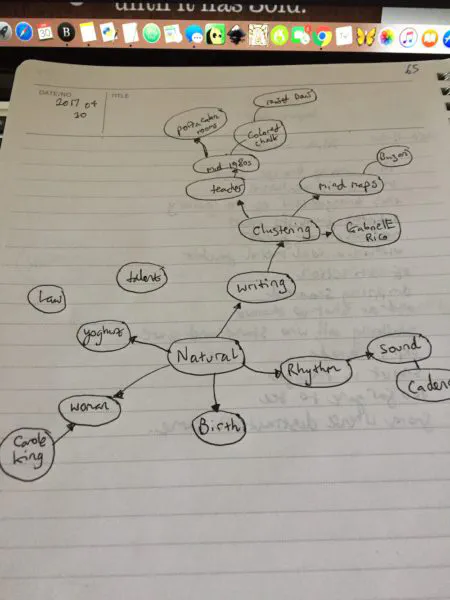 until it has Sold.
65
DATE/NO.
TITLE
2017 04
10
Colored
chalk
mid 1980s
teacher
Mind maps
Buzan
Clustering
GabriellE
Rico
talent
Law
writing
yoghurt
Natural
Rhythm
Sound
Caden
woman
Birth
Carole
king